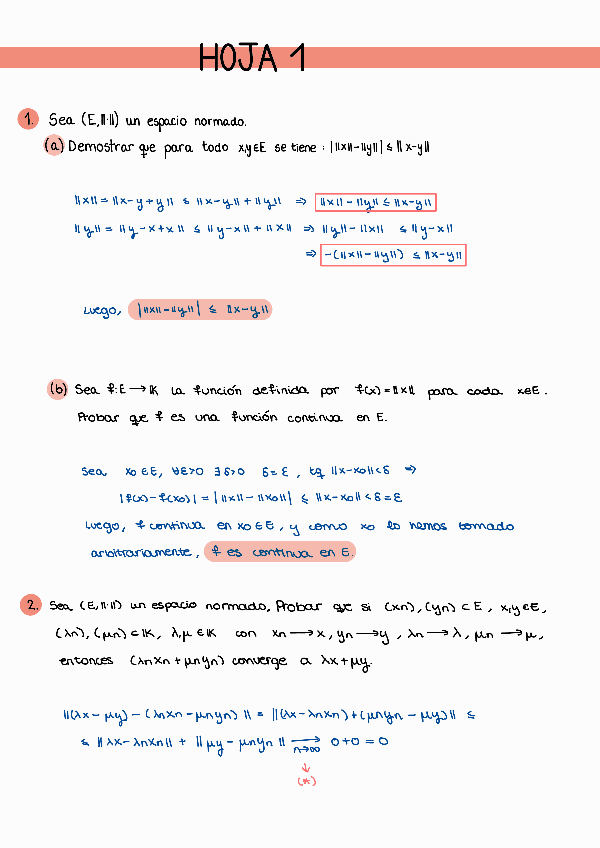 HOJA 1
1. Sea (E,‖·‖) un espacio normado.
(a) Demostrar que para todo x,y∈E se tiene: |‖x‖-‖y‖| ≤ ‖x-y‖
‖x‖ = ‖x-y+y‖ ≤ ‖x-y‖ + ‖y‖ ⇒ ‖x‖-‖y‖ ≤ ‖x-y‖
‖y‖ = ‖y-x+x‖ ≤ ‖y-x‖ + ‖x‖ ⇒ ‖y‖-‖x‖ ≤ ‖y-x‖
⇒ -(‖x‖-‖y‖) ≤ ‖x-y‖
Luego, |‖x‖-‖y‖| ≤ ‖x-y‖
(b) Sea f:E⟶𝕂 la función definida por f(x)=‖x‖ para cada x∈E.
Probar que f es una función continua en E.
Sea x₀∈E, ∀ε>0 ∃δ>0 δ=ε, tq ‖x-x₀‖<δ ⇒
|f(x)-f(x₀)| = |‖x‖-‖x₀‖| ≤ ‖x-x₀‖ < δ = ε
Luego, f continua en x₀∈E, y como x₀ lo hemos tomado
arbitrariamente, f es continua en E.
2. Sea (E,‖·‖) un espacio normado. Probar que si (xn),(yn) ⊂ E, x,y∈E,
(λn),(μn)⊂𝕂, λ,μ∈𝕂 con xn⟶x, yn⟶y, λn⟶λ, μn⟶μ,
entonces (λnxn+μnyn) converge a λx+μy.
‖(λx-μy)-(λnxn-μnyn)‖ = ‖(λx-λnxn)+(μnyn-μy)‖ ≤
≤ ‖λx-λnxn‖ + ‖μy-μnyn‖ ⟶ 0+0=0
n→∞
↓
(*)